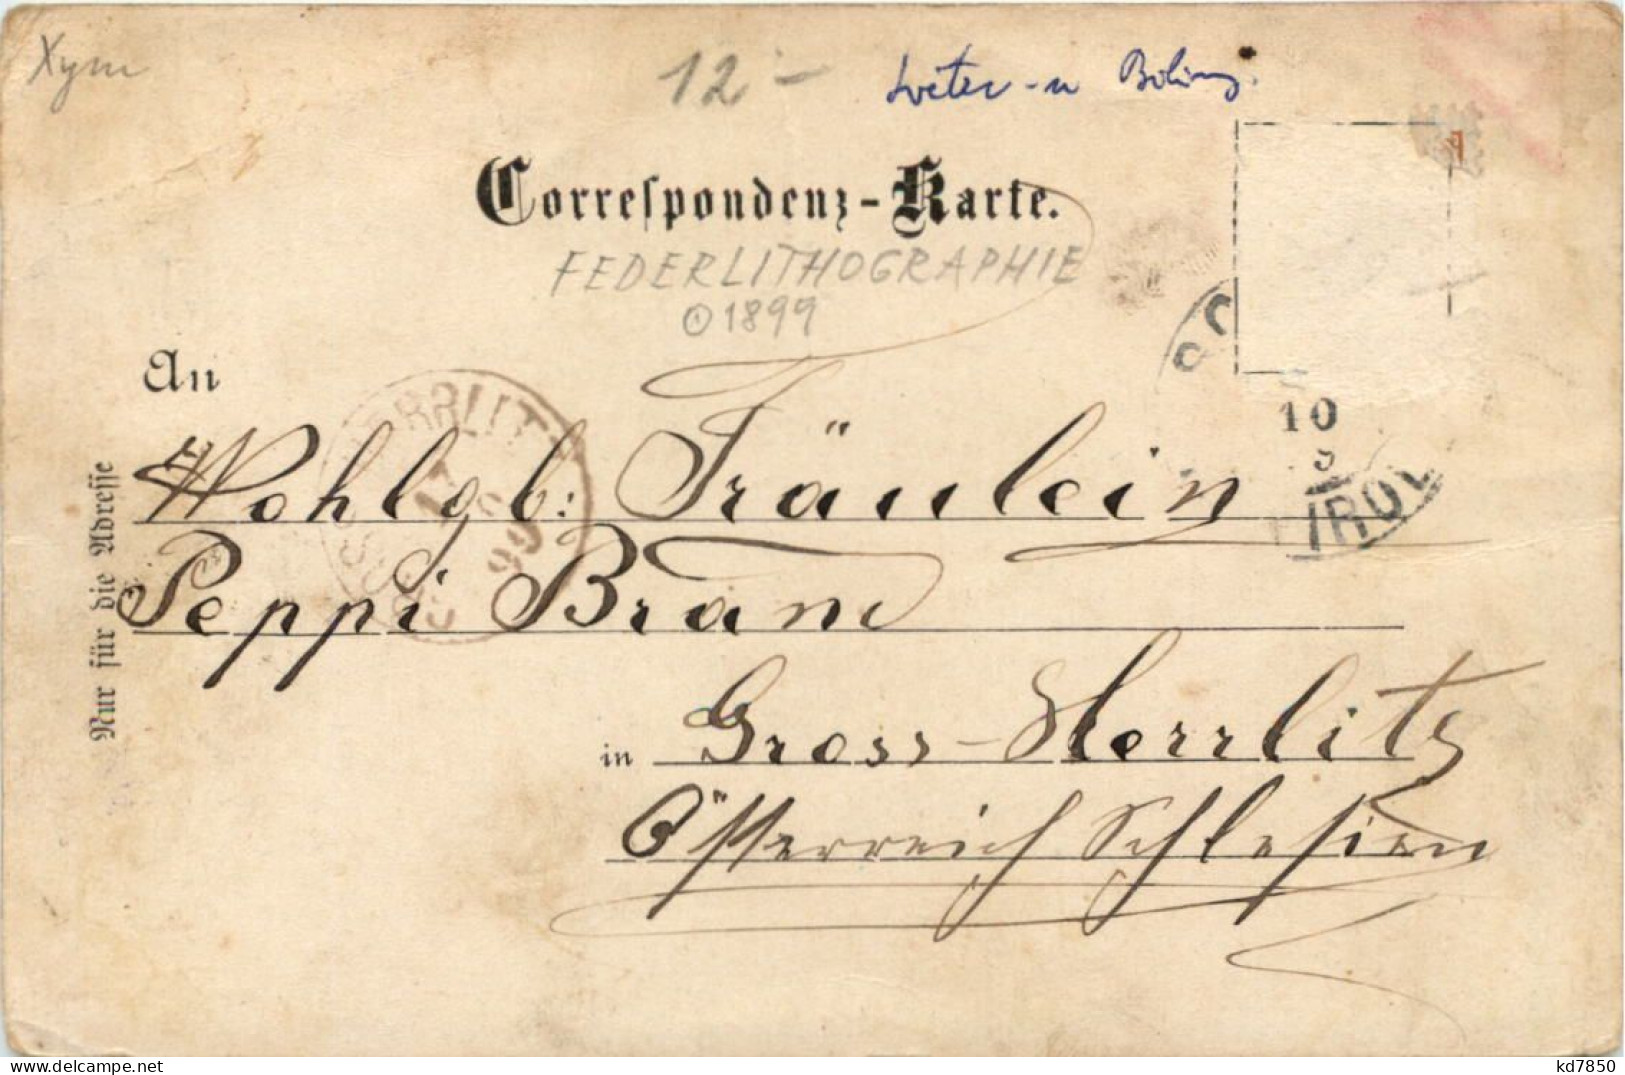 Xym
12 -
Correspondenz-Karte.
FEDERLITHOGRAPHIE
1899
An
Wohlgb: Fräulein
Peppi Bram
in Gross-Herrlitz
Österreich Schlesien
Nur für die Adresse
10
9
TIROL
HERRLITZ
99
kd7850